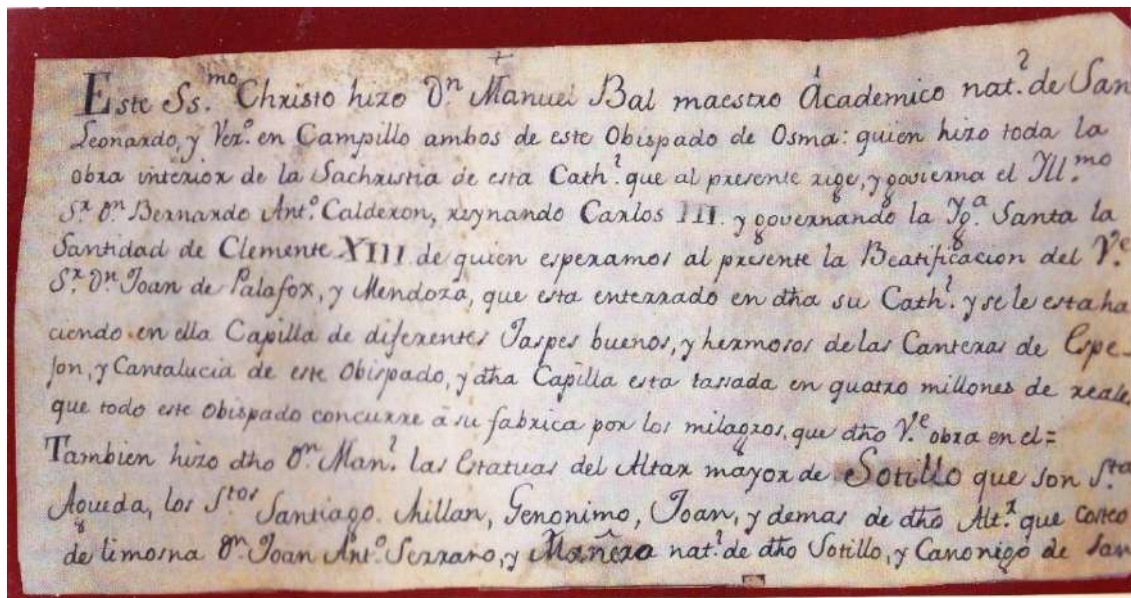 +
Este Ss.mo Christo hizo Dn. Manuel Bal maestro Académico nat.l de San
Leonardo, y Vez.o en Campillo ambos de este Obispado de Osma: quien hizo toda la
obra interior de la Sachristia de esta Cath.l que al presente rige, y govierna el Yll.mo
Sr. Dn. Bernardo Ant.o Calderon, reynando Carlos III. y governando la Yg.a Santa la
Santidad de Clemente XIII. de quien esperamos al presente la Beatificacion del V.e
Sr. Dn. Joan de Palafox, y Mendoza, que esta enterrado en dha su Cath.l y se le esta ha
ciendo en ella Capilla de diferentes Jaspes buenos, y hermosos de las Canteras de Espe-
jon, y Cantalucia de este Obispado, y dha Capilla esta tassada en quatro millones de reales
que todo este obispado concurre á su fabrica por los milagros, que dho V.e obra en el=
Tambien hizo dho Dn. Man.l las Estatuas del Altar mayor de Sotillo que son S.ta
Agueda, los S.tos Santiago. Millan, Genonimo, Joan, y demas de dho Alt.r que costeo
de limosna Dn. Joan Ant.o Serrano, y Mañero nat.l de dho Sotillo, y Canonigo de San